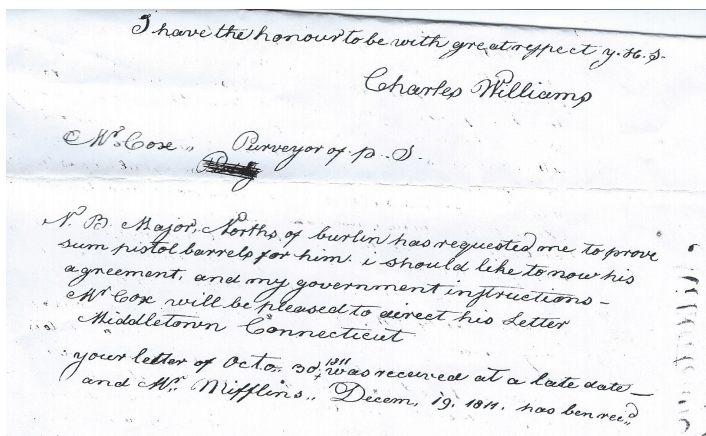 I have the honour to be with great respect y. H. S.
Charles Williams
Mr. Coxe,, Purveyor of p. S.
N. B. Major, Norths of burlin has requested me to prove
sum pistol barrels for him. i should like to now his
agreement, and my government instructions –
Mr Coxe will be pleased to direct his Letter
Middletown Connecticut
your letter of Octo. 30, 1811 was received at a late date –
and Mr. Mifflins,, Decem, 19. 1811. has ben recd